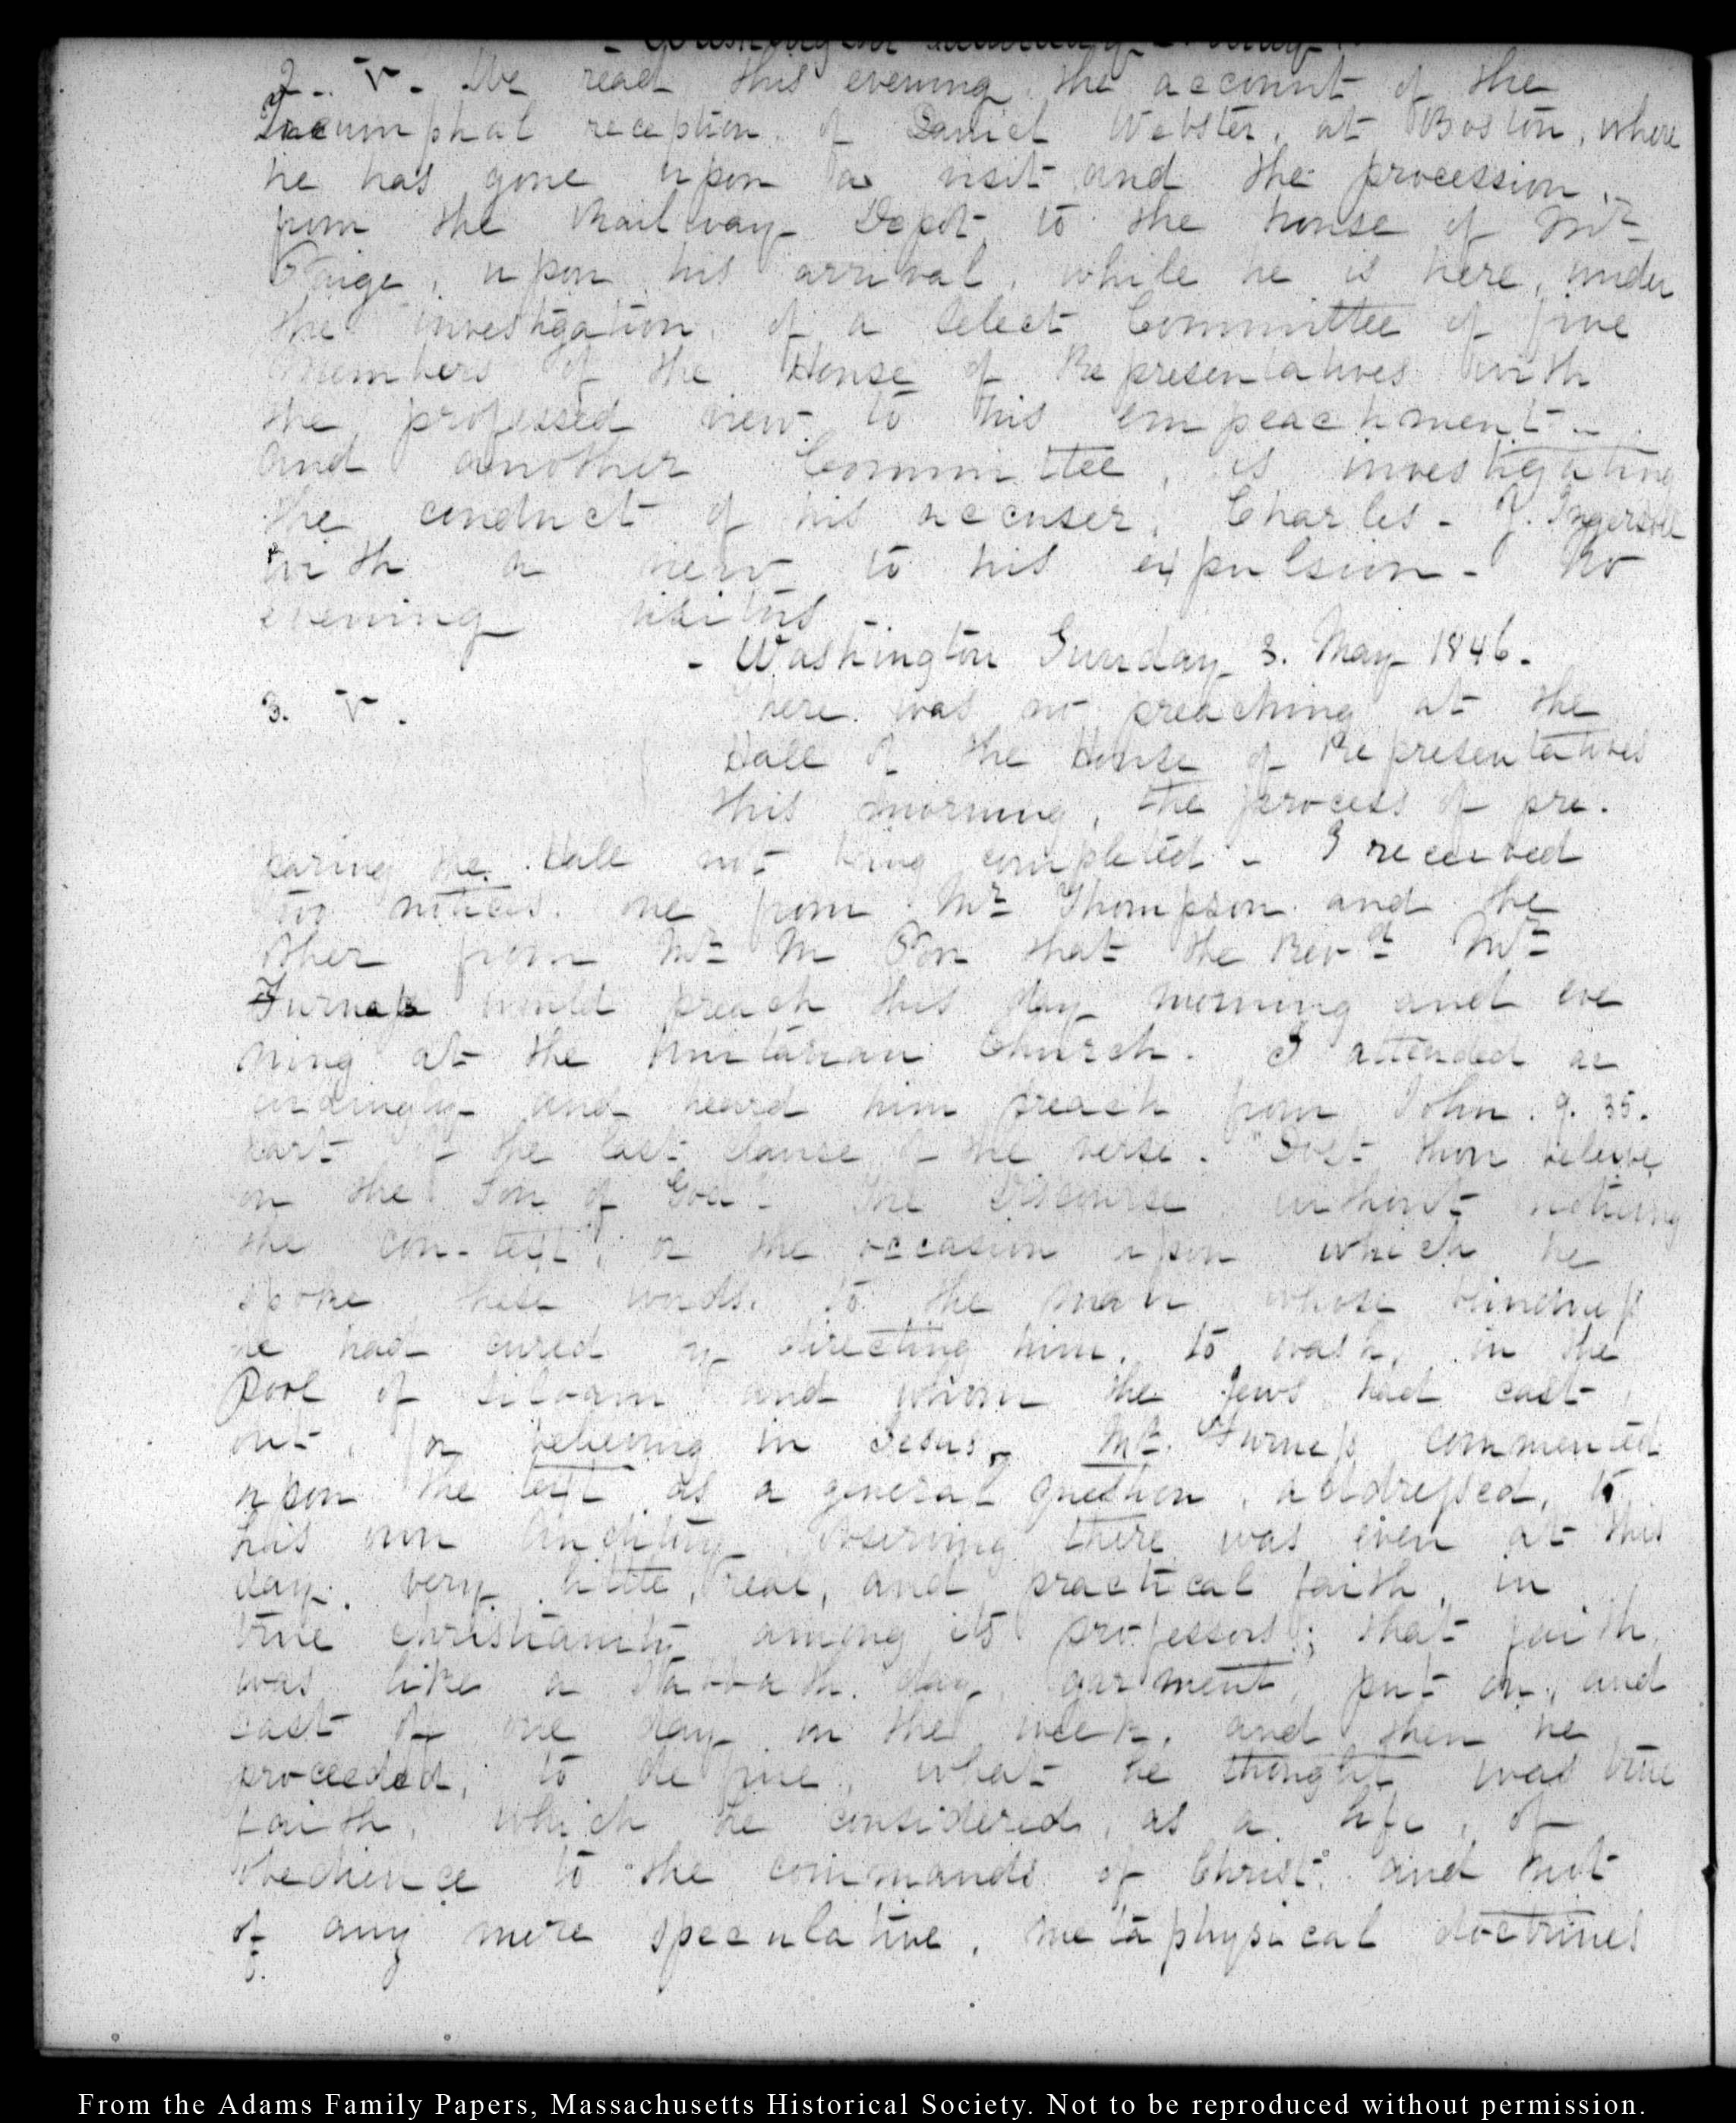 2. V. We read this evening the account of the
Triumphal reception of Daniel Webster, at Boston, where
he has gone upon a visit and the procession
from the Railway Depot to the house of Mr
Paige, upon his arrival, while he is here, under
the investigation of a Select Committee of five
Members of the House of Representatives with
the professed view to his empeachment -
and another Committee, is investigating
the conduct of his accuser, Charles - J. Ingersoll
with a view to his expulsion - No
evening visitors -
- Washington Sunday 3. May 1846.
3. V.
There was no preaching at the
Hall of the House of Representatives
this morning, the process of pre-
paring the Hall not being completed - I received
two notices. one from Mr Thompson and the
other from Mr M Orr that the Revd Mr
Furness would preach this day morning and eve
ning at the Unitarian Church. I attended ac
cordingly and heard him preach from John. 9. 35.
part of the last clause of the verse. "Dost thou believe
on the Son of God - The Discourse without noticing
the con-text, or the occasion upon which he
spoke these words. to the man whose blindness
he had cured by directing him, to wash, in the
Pool of Siloam and whom the Jews had cast
out, for believing in Jesus, Mr. Furness commented
upon the text as a general question, addressed, to
his own auditory observing there was even at this
day. very little, real, and practical faith, in
true christianity among its professors; that faith,
was like a Sabbath. day garment, put on, and
cast off one day in the week, and then he
proceeded, to define, what he thought was true
faith, which he considered, as a life, of
obedience to the commands of Christ. and not
of any mere speculative, metaphysical doctrines
From the Adams Family Papers, Massachusetts Historical Society. Not to be reproduced without permission.